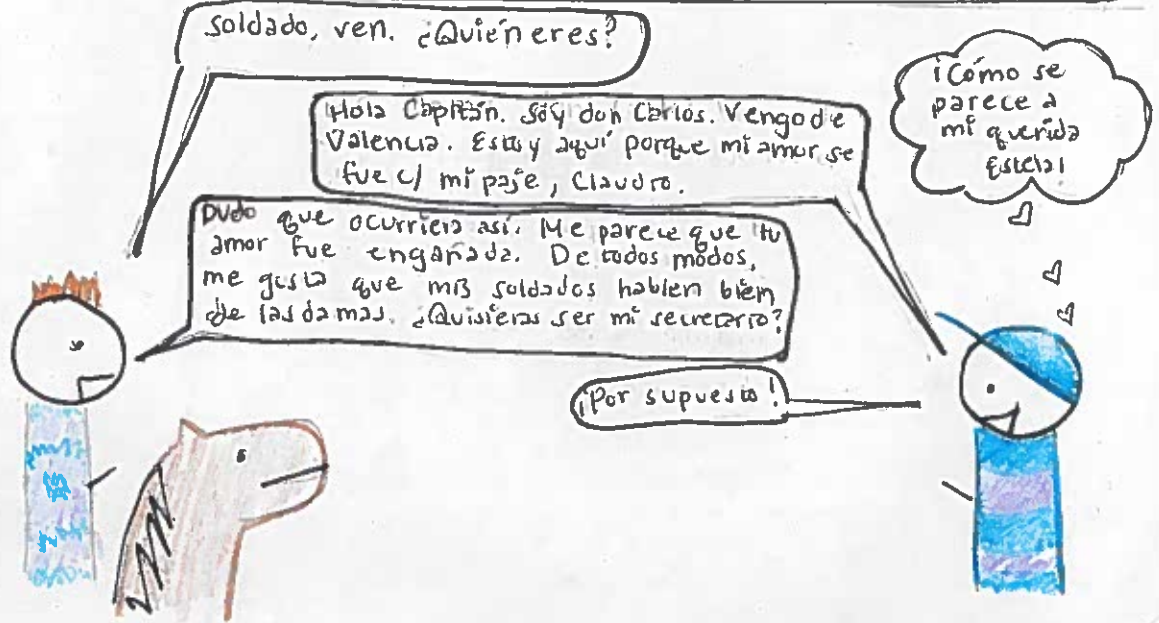 soldado, ven. ¿Quién eres?
Hola Capitán. Soy don Carlos. Vengo de
Valencia. Estoy aquí porque mi amor se
fue c/ mi paje, Claudio.
¡Cómo se
parece a
mi querida
Estela!
Dudo que ocurriera así. Me parece que tu
amor fue engañada. De todos modos,
me gusta que mis soldados hablen bien
de las damas. ¿Quisieras ser mi secretario?
¡Por supuesto!